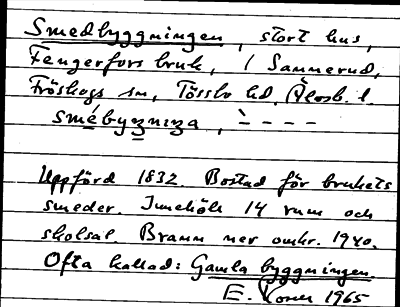 Smedbyggningen, stort hus,
Fengerfors bruk, i Sannerud,
Fröskogs sn, Tössbo hd, Älvsb. l.
smébyggniga, ` – – – –
Uppförd 1832. Bostad för brukets
smeder. Innehöll 14 rum och
skolsal. Brann ner omkr. 1940.
Ofta kallad: Gamla byggningen.
E. 1965